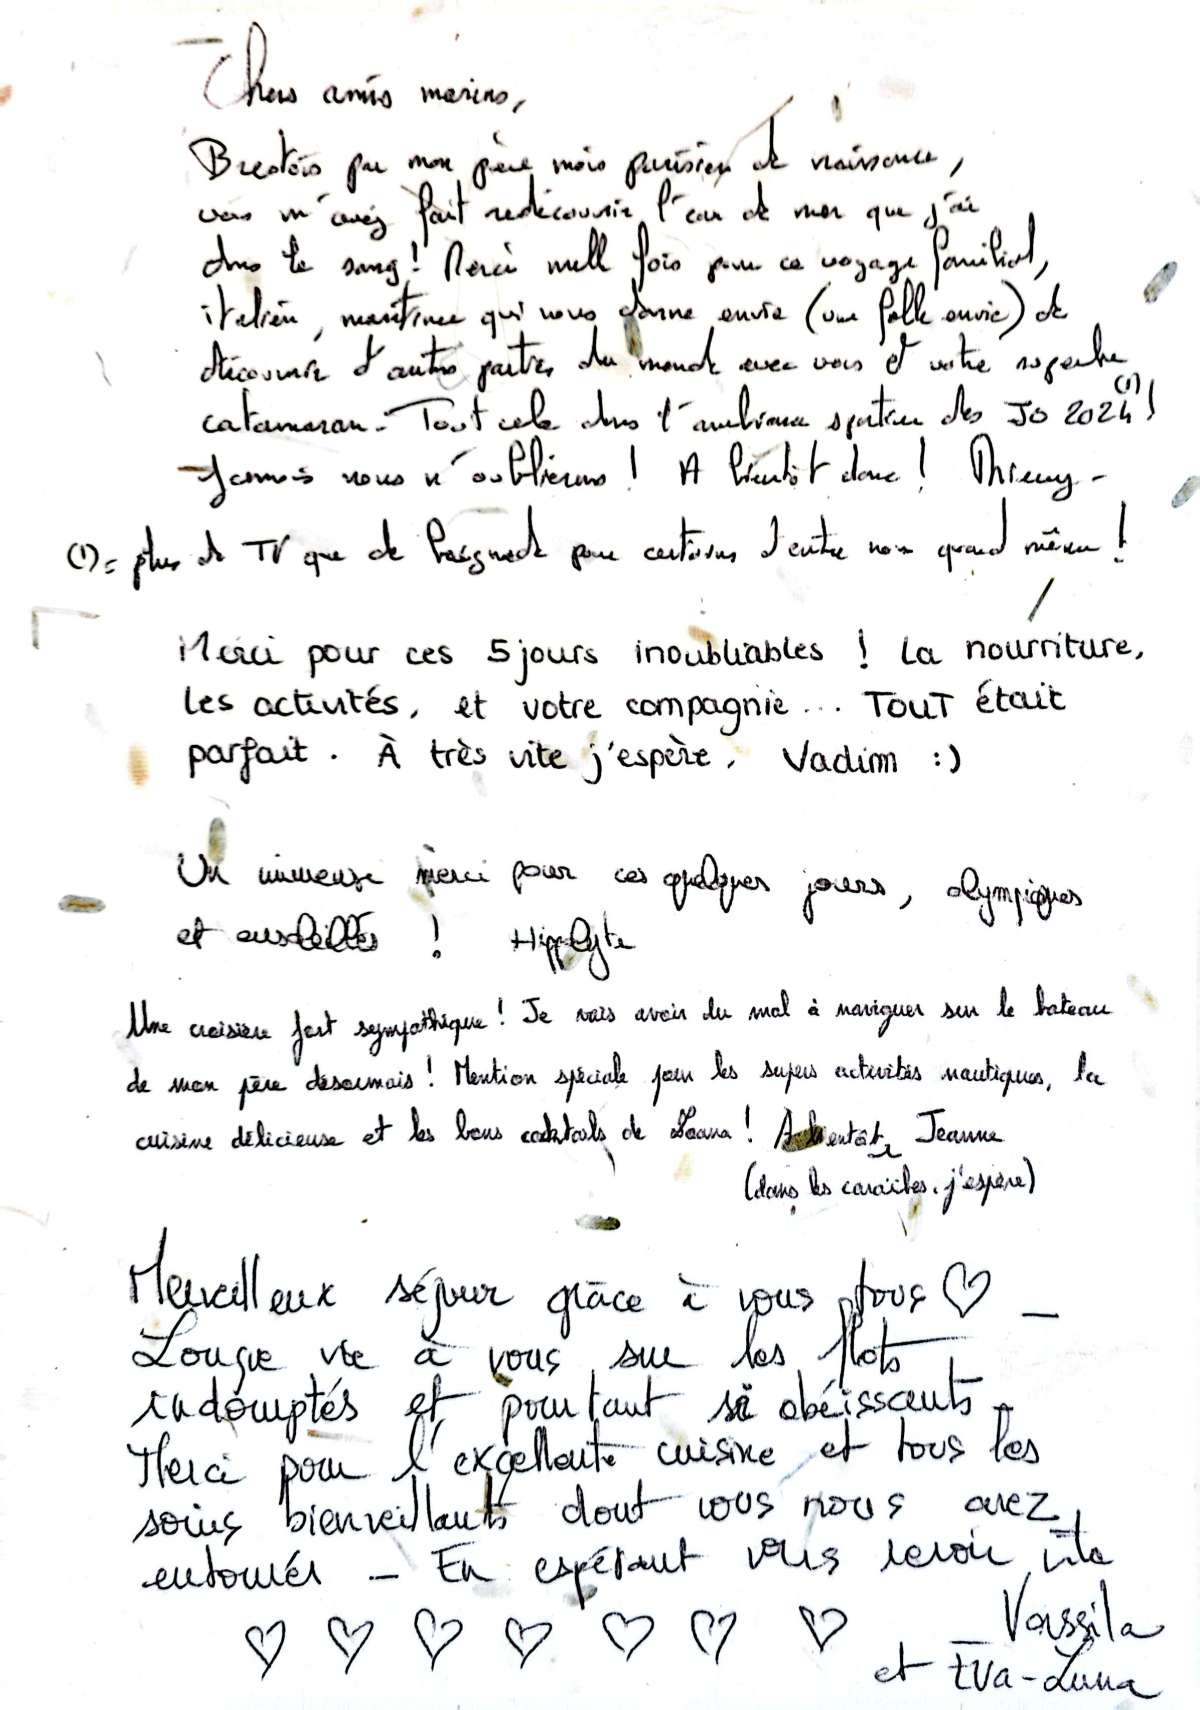 Chers amis marins,
Brestois par mon père mais parisien de naissance,
vous m'avez fait redécouvrir l'eau de mer que j'ai
dans le sang ! Merci mille fois pour ce voyage familial,
italien, maritime qui nous donne envie (une folle envie) de
découvrir d'autres parties du monde avec vous et votre superbe
catamaran - Tout cela dans l'ambiance sportive des JO 2024 (1) !
Jamais nous n'oublierons ! A bientôt donc ! Thierry -
(1) = plus de TV que de baignade pour certains d'entre nous quand même !
Merci pour ces 5 jours inoubliables ! La nourriture,
les activités, et votre compagnie... TOUT était
parfait. À très vite j'espère. Vadim :)
Un immense merci pour ces quelques jours, olympiques
et ensoleillés ! Hippolyte
Une croisière fort sympathique ! Je vais avoir du mal à naviguer sur le bateau
de mon père désormais ! Mention spéciale pour les supers activités nautiques, la
cuisine délicieuse et les bons cocktails de ! A bientôt Jeanne
(dans les caraïbes, j'espère)
Merveilleux séjour grâce à vous tous ♡ _
Longue vie à vous sur les flots
indomptés et pourtant si obéissants -
Merci pour l'excellente cuisine et tous les
soins bienveillants dont vous nous avez
entourés - En espérant vous revoir vite
♡ ♡ ♡ ♡ ♡ ♡ ♡ Vassila
et Eva-Luna